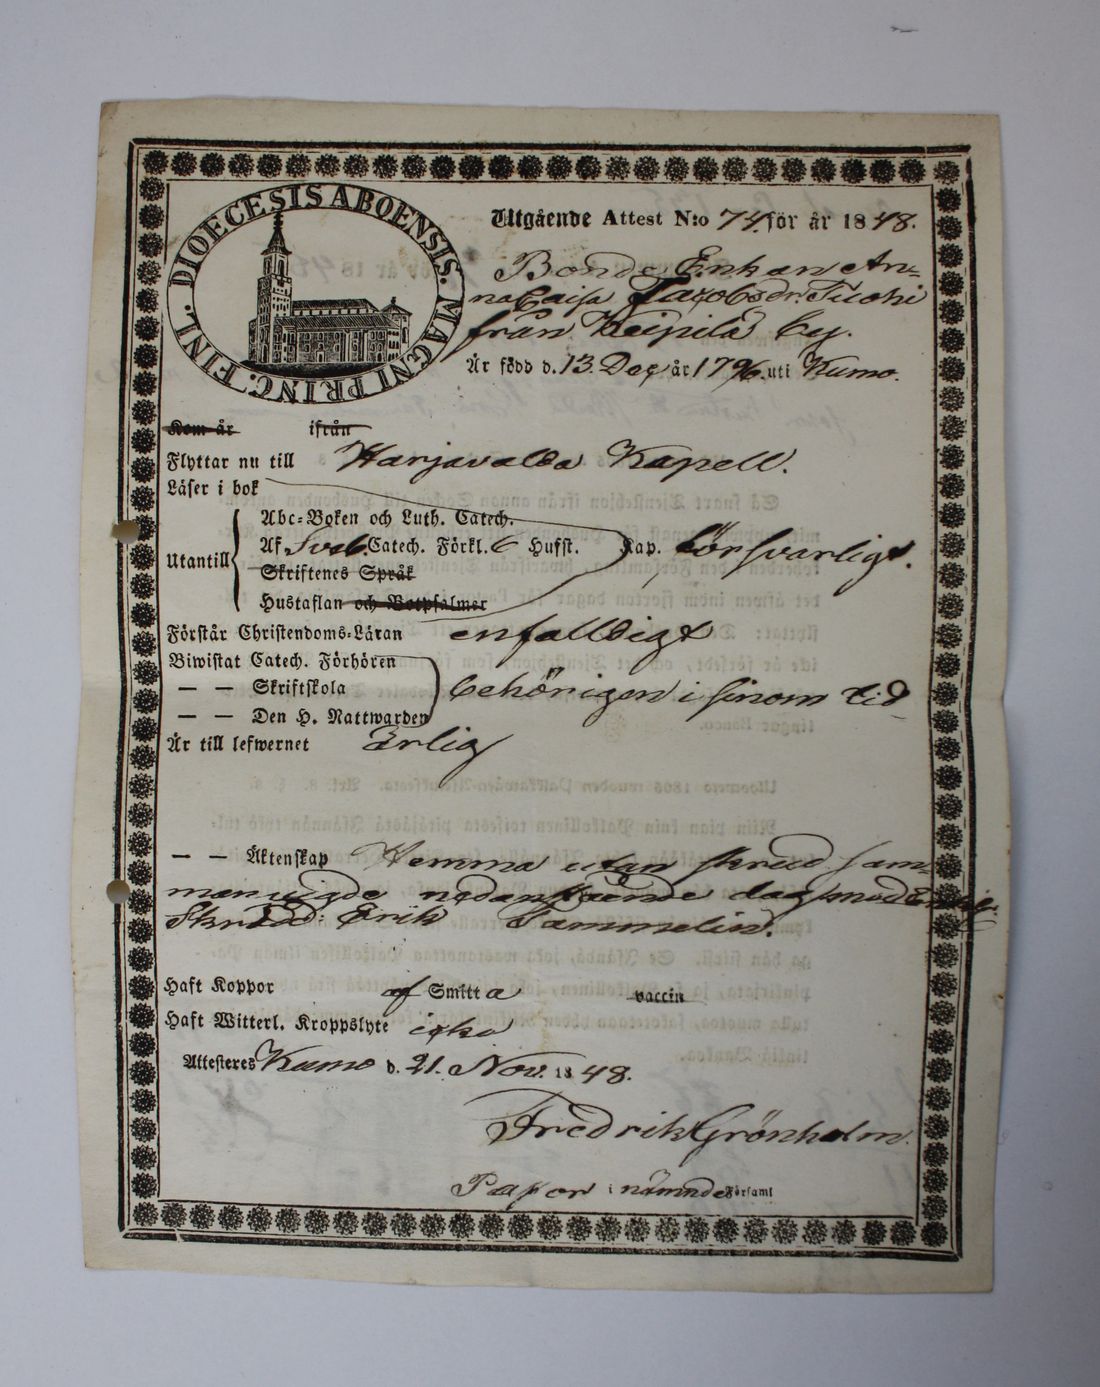 DIOECESIS ABOENSIS. MAGNI PRINC. FINL.
Utgående Attest N:o 74. för år 1848.
Bonde Enkan An-
na Caisa Jacobsdr Tuohi
från Keipilä by.
Är född d. 13. Dec. år 1796. uti Kumo.
Kom år ifrån
Flyttar nu till Harjavalda Kapell.
Läser i bok
Utantill
Abc-Boken och Luth. Catech.
Af Sveb. Catech. Förkl. 6 Hufst. Kap. försvarligt.
Skriftenes Språk
Hustaflan och Botpsalmer
Förstår Christendoms-Läran enfalldigt
Biwistat Catech. Förhören
— — Skriftskola behörigen i sinom tid
— — Den H. Nattwarden
Är till lefwernet Ärlig
— — Äktenskap Hemma utan skrud sam-
manvigde nedanstående dag med
Skrädd: Erik Sammelin.
Haft Koppor af Smitta vaccin
Haft Witterl. Kroppslyte icke
Attesteres Kumo d. 21. Nov. 1848.
Fredrik Grönholm.
Pastor i nämnde Församl